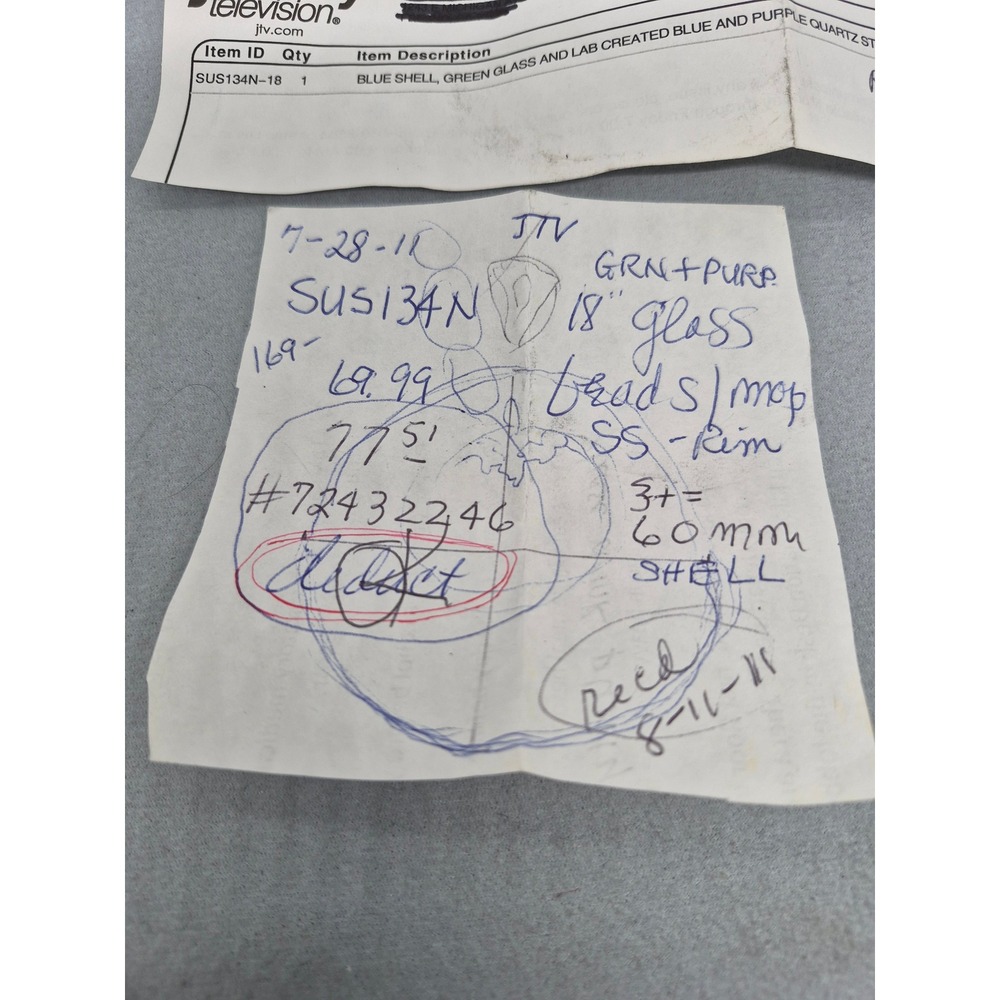 television®
jtv.com
Item ID Qty Item Description
SUS134N-18 1 BLUE SHELL, GREEN GLASS AND LAB CREATED BLUE AND PURPLE QUARTZ ST
JTV
7-28-11
GRN + PURP.
SUS134N
18" Glass
169-
69.99
beads/mop
77 51
SS - Rim
#72432246
3+=
60mm
deduct
SHELL
Recd
8-11-11